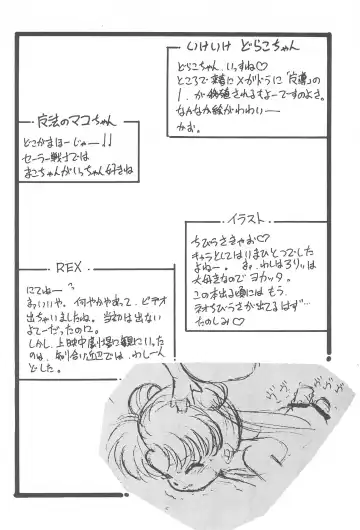 いけいけ どらこちゃん
どらこちゃん、いっすね♡
ところで來春に×がドラに「皮膚」の
なんか絵がかわいいー
かお。
魔法のマコちゃん
どこがまほーじゃー!!
セーラー戦士では
まこちゃんがいっちゃん好きね
イラスト
ちびうさきゃお♡
キャラとしてはいまひとつでした
よねー。お、わしはろりぃは
大好きなのでヨカッタ。
この本出る頃にはもう、
ネオちびうさが出てるはず…
たのしみ♡
REX
にてねーっ
まぁいいや、何やかやあって、ビデオ
出ちゃいましたね。当初は出ない
よてーだったのに。
しかし、上映中劇場に観にいった
のは、知り合い近辺では、わし一人
でした。